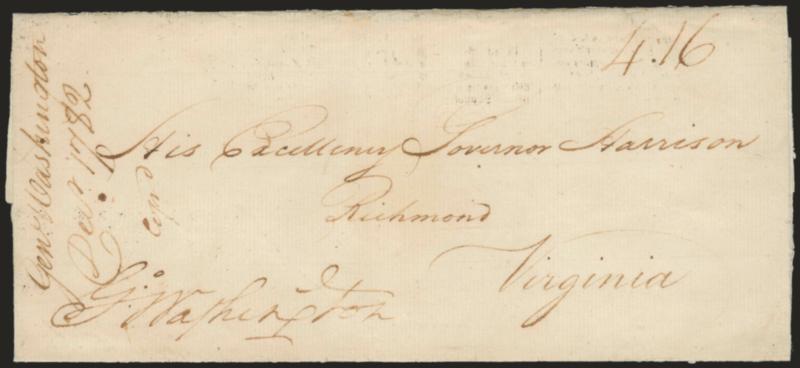 4.16
His Excellency Governor Harrison
Richmond
Virginia
Go. Washington
Genl. Washington
Decr. 1782